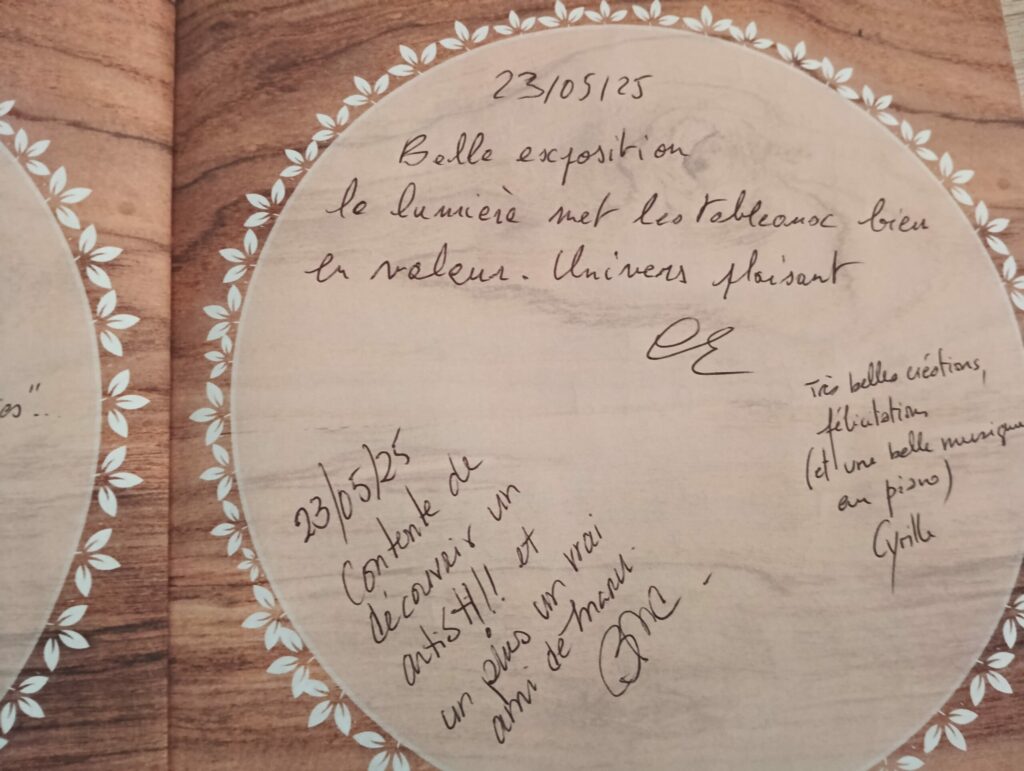 23/05/25
Belle exposition
la lumière met les tableaux bien
en valeur. Univers plaisant
Très belles créations,
félicitations
(et une belle musique
au piano)
Cyrille
23/05/25
Contente de
découvrir un
artiste!! et
un plus un vrai
ami de manu.